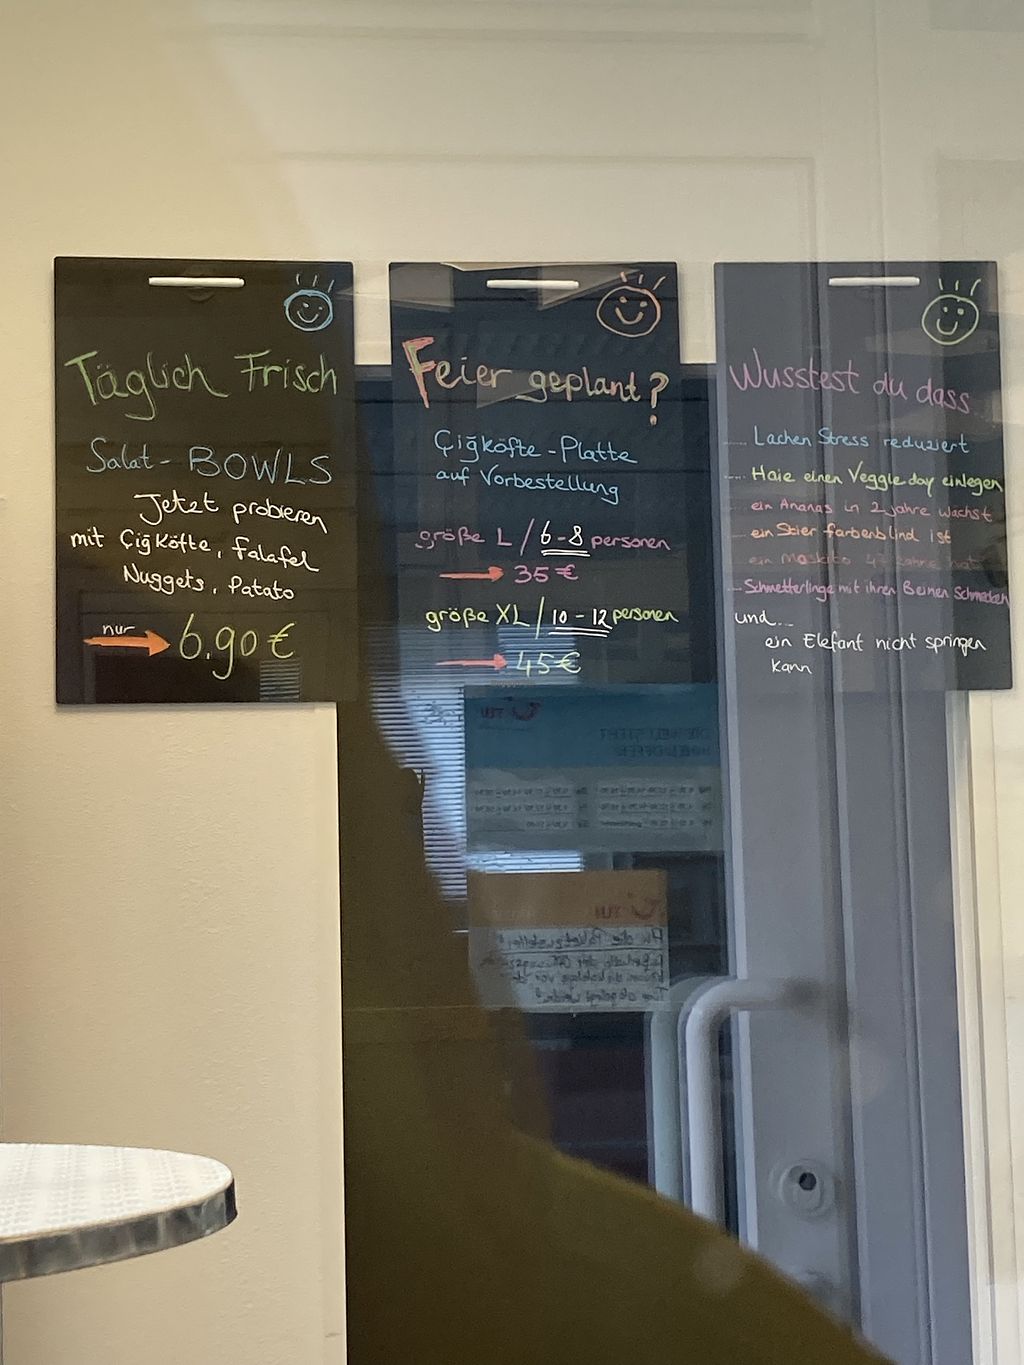 Täglich Frisch
Salat - BOWLS
Jetzt probieren
mit Çiğköfte, Falafel
Nuggets, Patato
nur
6.90 €
Feier geplant?
Çiğköfte - Platte
auf Vorbestellung
größe L / 6 - 8 personen
35 €
größe XL / 10 - 12 personen
45 €
Wusstest du dass
..... Lachen Stress reduziert
..... Haie einen Veggieday einlegen
ein Ananas in 2 Jahre wächst
ein Stier farbenblind ist
ein Moskito 47 Zähne hat
... Schmetterlinge mit ihren Beinen schmecken
und...
ein Elefant nicht springen
kann
TUI
TUI